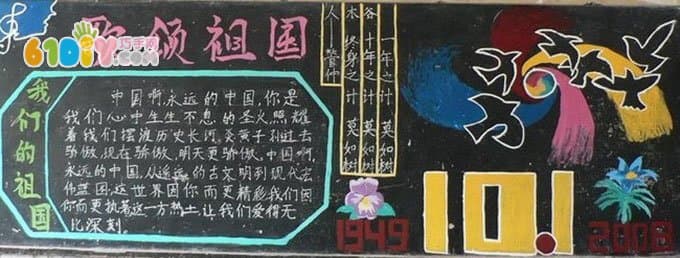 歌颂祖国
61DIY
巧手网
我们的祖国
中国啊,永远的中国,你是
我们心中生生不息的圣火,照耀
着我们摆渡历史长河,炎黄子孙过去
骄傲,现在骄傲,明天更骄傲。中国啊,
永远的中国,从遥远的古文明到现代宏
伟蓝图,这世界因你而更精彩我们因
你而更执着这一方热土让我们爱得无
比深刻.
一年之计 莫如树
谷 十年之计 莫如树
木 终身之计 莫如树
人——管仲
1949
10.1
2008